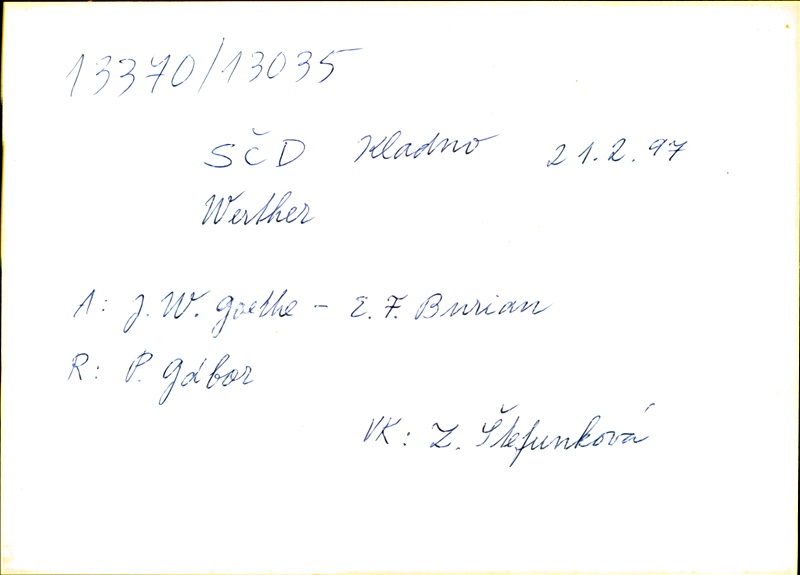 13370/13035
SČD Kladno 21.2.97
Werther
A: J. W. Goethe - E. F. Burian
R: P. Gábor
VK: Z. Štefunková